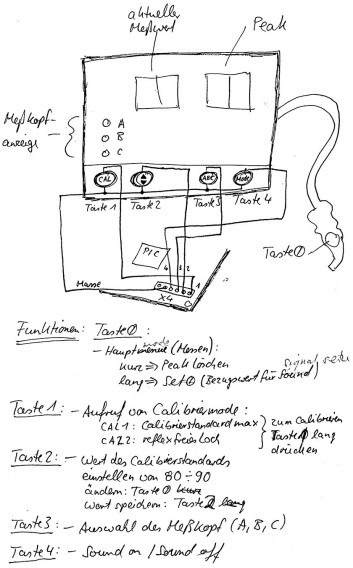 aktueller
Meßwert
Peak
Meßkopf-
anzeige
A
B
C
CAL
Mode
Taste 1
Taste 2
Taste 3
Taste 4
Taste
PIC
4
1
Masse
X4
Funktionen: Taste 0:
- Hauptmode (Messen):
kurz ⇒ Peak löschen
lang ⇒ Set 0 (Bezugswert für Sound)
signal seite
Taste 1: - Aufruf von Calibriermode:
CAL1: Calibrierstandard max
CAL2: reflexfreies Loch
zum Calibrieren
Taste 1 lang
drücken
Taste 2: - Wert des Calibrierstandards
einstellen von 80 ÷ 90
ändern: Taste 0 kurz
Wert speichern: Taste 2 lang
Taste 3: - Auswahl des Meßkopf (A, B, C)
Taste 4: - Sound on / Sound off